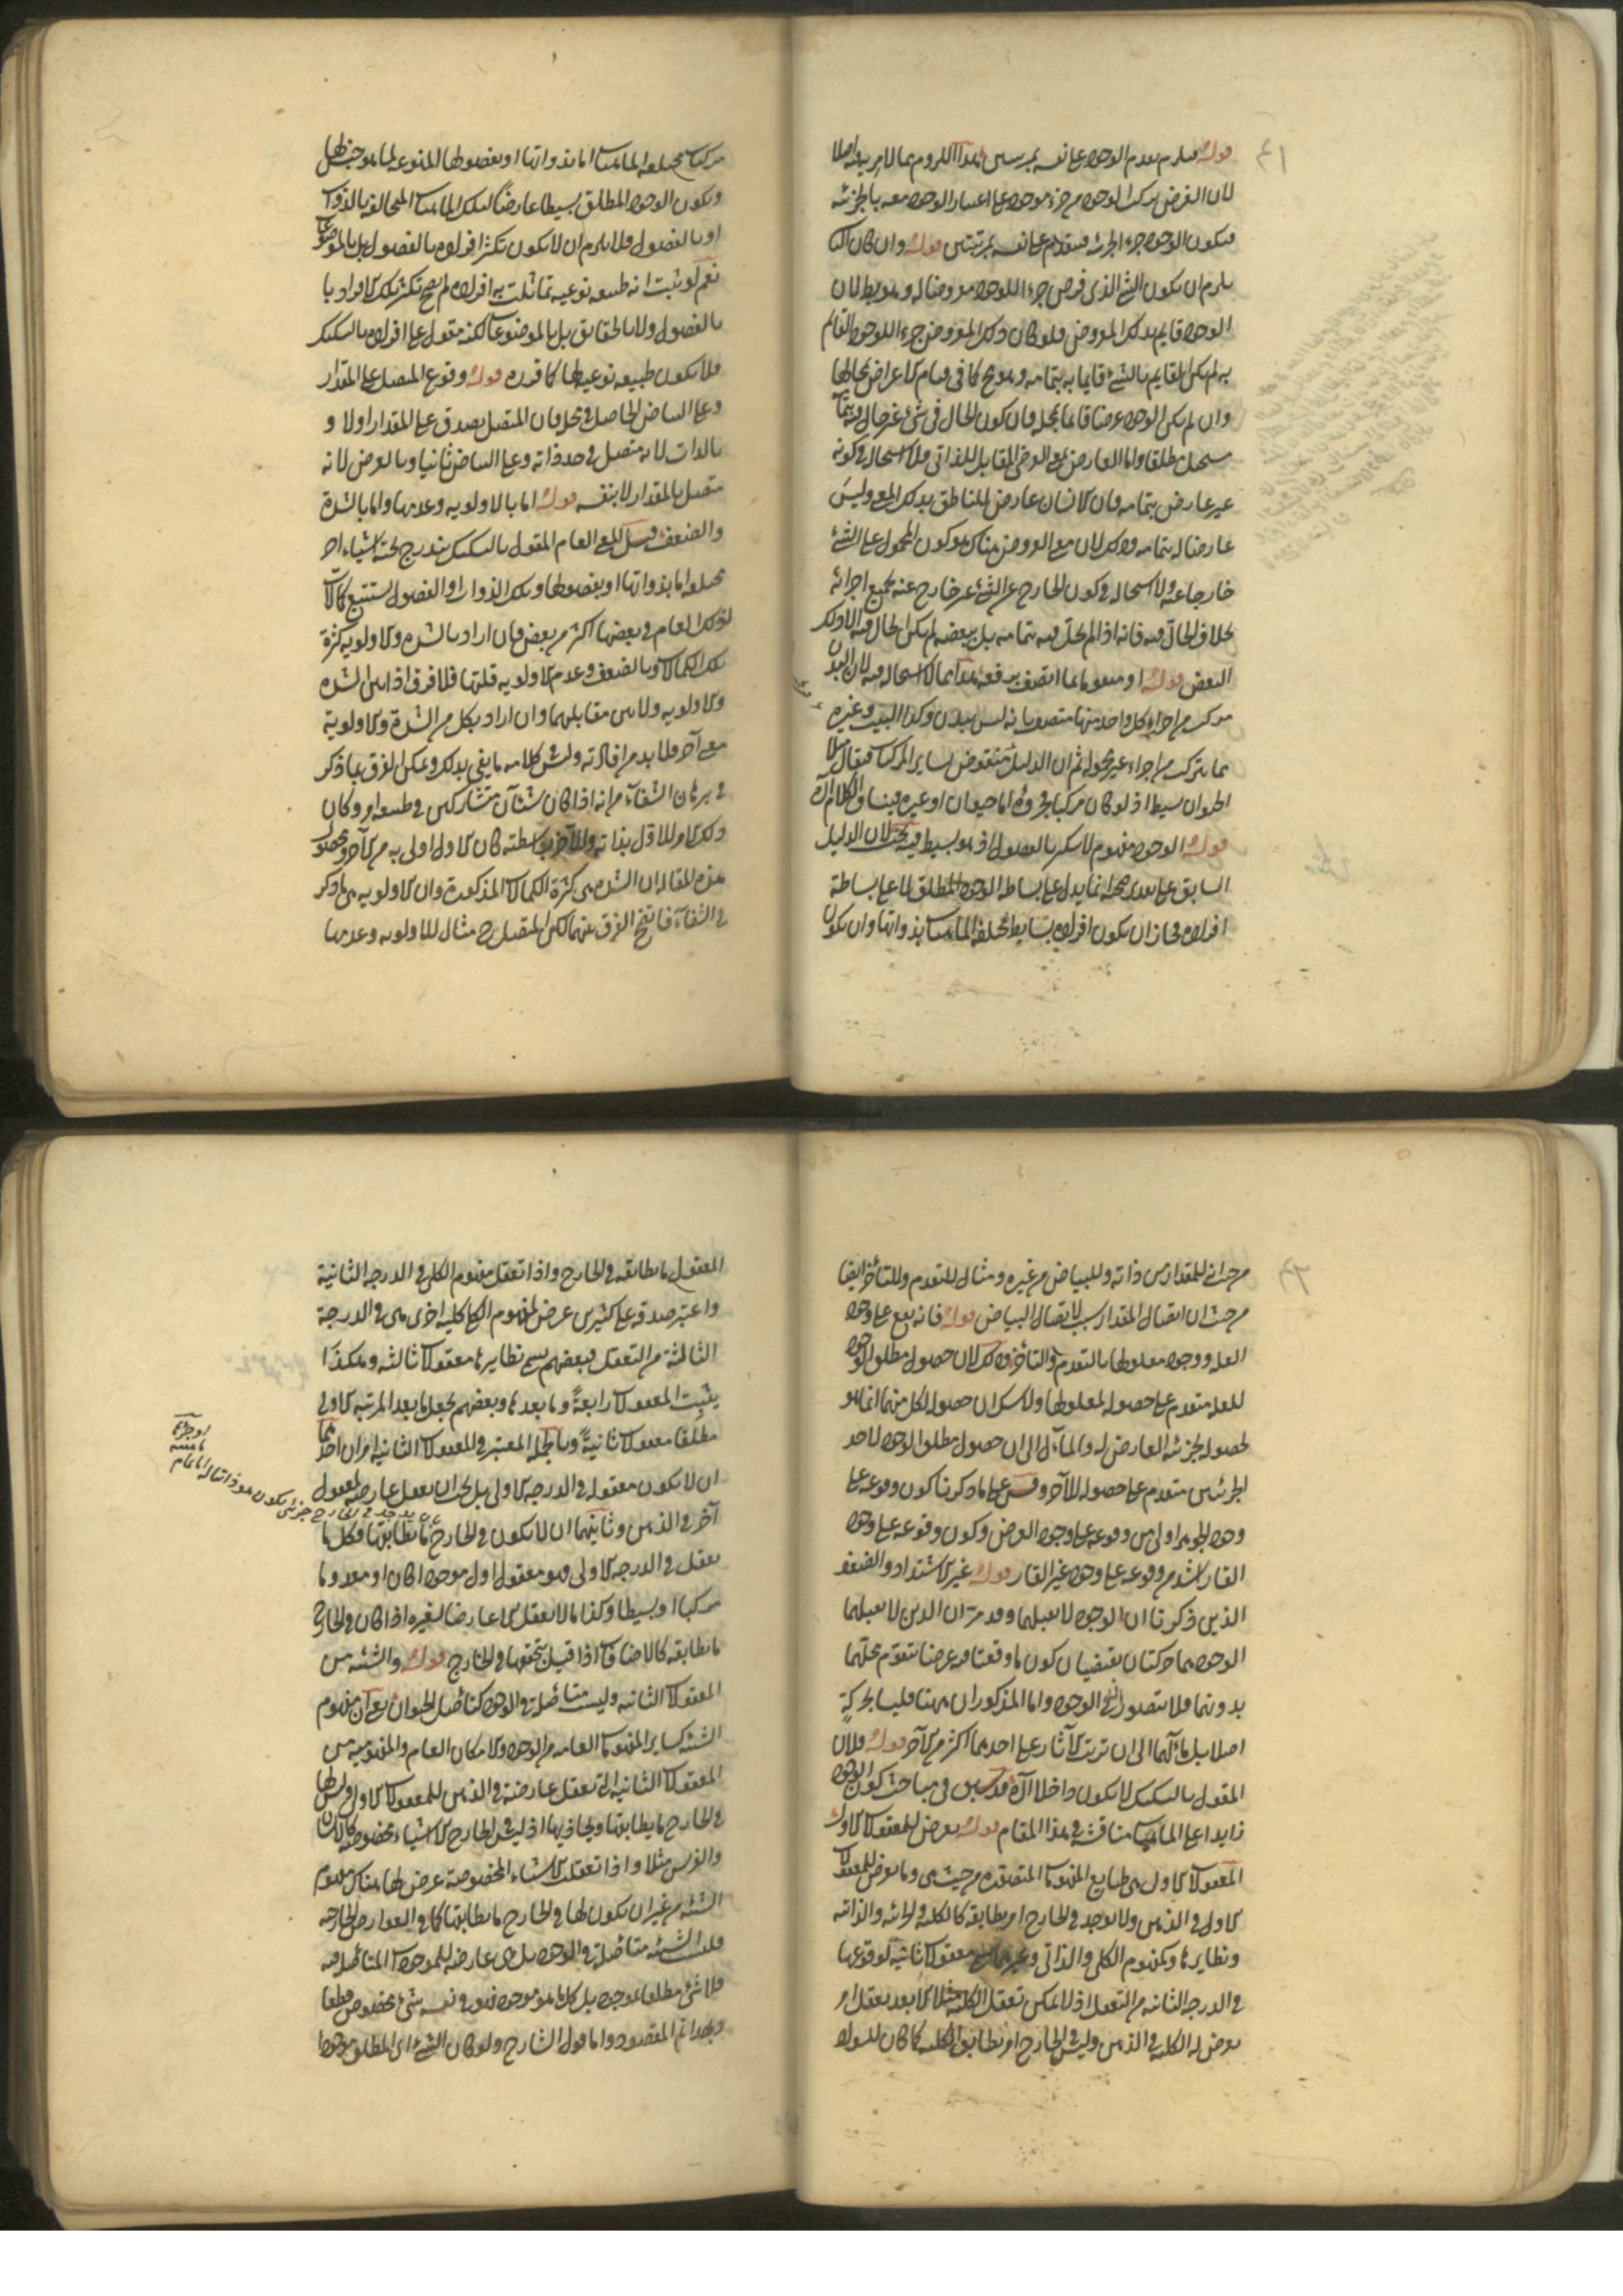 قوله فيلزم تقدم الوجود على نفسه بمرتبتين هذا اللزوم مما لا يريبه اصلا
لان الفرض تركب الوجود من جزء موجود على اعتبار الوجود معه بالجزئية
فيكون الوجود جزءا لجزئه فيتقدم على نفسه بمرتبتين قوله وان كان الثاني
يلزم ان يكون الشئ الذي فرض جزءا للوجود معروضا له وهو بط لان
الوجود قايم بذلك المعروض فلو كان ذلك المعروض جزءا للوجود القائم
به لم يكن القايم بالشئ قايما به بتمامه وهو مح كما في قيام الاعراض بمحالها
وان لم يكن الوجود عرضا قائما بمحله فان كون الحال في شئ غير حال فيه بتمامه
مستحيل مطلقا واما العارض بمعنى العرضي المقابل للذاتي فلا استحالة في كونه
غير عارض بتمامه فان الانسان عارض للناطق بذلك المعنى وليس
عارضا له بتمامه وذلك لان معنى العروض هناك هو كون المحمول على الشئ
خارجا عنه ولا استحالة في كون الخارج عن الشئ غير خارج عنه بجميع اجزائه
بخلاف الحال فيه فانه اذا لم يحل فيه بتمامه بل ببعضه لم يكن الحال فيه الا ذلك
البعض قوله او معدوما بما اتصف برفعه هذا مما لا استحالة فيه لان البدن
مركب من اجزاء كل واحد منها متصف بانه ليس ببدن وكذا البيت وغيره
مما يتركب من اجزاء غير محمولة ثم ان الدليل منقوض بساير المركبات فيقال مثلا
الحيوان بسيط اذ لو كان مركبا فجزؤه اما حيوان او غيره وينساق الكلام الى آخره
قوله الوجود مفهوم لا يتكثر بالفصول اذ هو بسيط فيه بحث لان الدليل
السابق على تقدير صحته انما يدل على بساطة الوجود المطلق لا على بساطة
افراده فجاز ان يكون افراده بسايط مختلفة الماهيات بذواتها وان يكون
مركبات مختلفة الماهيات اما بذواتها او بفصولها المنوعة لما هو جنس لها
ويكون الوجود المطلق بسيطا عارضا لتلك الماهيات المتخالفة بالذوات
او بالفصول فلا يلزم ان لا يكون تكثر افراده بالفصول بل بالموضوعات
نعم لو ثبت انه طبيعة نوعية تماثلت به افراده لم يصح تكثر تلك الافراد با
بالفصول ولا بالحقايق بل بالموضوعات لكنه مقول على افراده بالتشكيك
فلا يكون طبيعة نوعية لها كما قرره قوله وقوع المتصل على المقدار
وعلى البياض الحاصل في محل فان المتصل يصدق على المقدار اولا و
بالذات لانه متصل في حد ذاته وعلى البياض ثانيا وبالعرض لانه
متصل بالمقدار لا بنفسه قوله اما بالاولوية وعدمها واما بالشدة
والضعف قيل المعنى العام المقول بالتشكيك يندرج تحته اشياء اخر
مختلفة اما بذواتها او بفصولها وتلك الذوات او الفصول تستتبع كمالات
لذلك العام في بعضها اكثر من بعض فان اراد بالشدة والاولوية كثرة
تلك الكمالات وبالضعف وعدم الاولوية قلتها فلا فرق اذا بين الشدة
والاولوية ولا بين مقابليهما وان اراد بكل من الشدة والاولوية
معنى آخر فلا بد من افادته وليس في كلامه ما يفي بذلك ويمكن الفرق بما ذكر
في برهان الشفاء من انه اذا كان شيئان متشاركين في طبيعة امر وكان
ذلك الامر للاول بذاته وللآخر بواسطته كان الاول اولى به من الآخر ومحصول
هذه المقالة ان الشدة هي كثرة الكمالات المذكورة وان الاولوية هي ما ذكر
في الشفاء فاتضح الفرق بينهما لكن المتصل ح مثال للاولوية وعدمها
من حيث انه للمقدار من ذاته وللبياض من غيره ومثال للتقدم والتأخر ايضا
من حيث ان اتصال المقدار سبب لاتصال البياض قوله فانه يقع على وجود
العلة ووجود معلولها بالتقدم والتأخر وذلك لان حصول مطلق الوجود
للعلة متقدم على حصوله لمعلولها ولا شك ان حصوله لكل منهما انما هو
لحصوله لجزئية العارض له والمآل الى ان حصول مطلق الوجود لاحد
الجزئيين متقدم على حصوله للآخر وقس على ما ذكرنا كون وقوعه على
وجود الجوهر اولى من وقوعه على وجود العرض وكون وقوعه على وجود
القار اشد من وقوعه على وجود غير القار قوله غير الاشتداد والضعف
الذين ذكرنا ان الوجود لا يقبلهما وقد مر ان الذين لا يقبلهما
الوجود هما حركتان تقتضيان كون ما وقعتا فيه عرضا يتقوم محلهما
بدونهما فلا يتصوران في الوجود واما المذكوران ههنا فليسا بحركة
اصلا بل مآلهما الى ان ترتب الآثار على احدهما اكثر من الآخر قوله فلان
المقول بالتشكيك لا يكون داخلا الى آخره قد سبق في مباحث كون الوجود
زايدا على الماهيات مناقشة في هذا المقام قوله يعرض للمعقولات الاول
المعقولات الاول هي طبايع المفهومات المتصورة من حيث هي وما يعرض للمعقولات
الاول في الذهن ولا يوجد في الخارج امر يطابقه كالكلية والجزئية والذاتية
ونظايرها وكمفهوم الكلي والذاتي معقولات ثانية لوقوعها
في الدرجة الثانية من التعقل اذ لا يمكن تعقل الكلية مثلا الا بعد تعقل امر
يعرض له الكلية في الذهن وليس في الخارج امر يطابق الكلية كما كان للسواد
المعقول ما يطابقه في الخارج واذا تعقل مفهوم الكلي في الدرجة الثانية
واعتبر صدقه على كثيرين عرض لمفهوم الكلي كلية اخرى هي في الدرجة
الثالثة من التعقل فبعضهم يسمي نظايرها معقولات ثالثة وهكذا
يثبت المعقولات رابعة وما بعدها وبعضهم يجعل ما بعد المرتبة الاولى
مطلقا معقولات ثانية وبالجملة المعتبر في المعقولات الثانية امران احدهما
ان لا يكون معقولة في الدرجة الاولى بل يجب ان يعقل عارضة لمعقول
آخر في الذهن وثانيهما ان لا يكون في الخارج ما يطابقها فكل ما
يعقل في الدرجة الاولى فهو معقول اول موجودا كان او معدوما
مركبا او بسيطا وكذا ما لا يعقل الا عارضا لغيره اذا كان في الخارج
ما يطابقه كالاضافات اذا قيل بتحققها في الخارج قوله والشيئية من
المعقولات الثانية وليست متأصلة في الوجود كتأصل الحيوان يعني ان مفهوم
الشيئية كساير المفهومات العامة من الوجود والامكان العام والمفهومية من
المعقولات الثانية التي تعقل عارضة في الذهن للمعقولات الاول وليس لها
في الخارج ما يطابقها ويحاذيها اذ ليس في الخارج الا اشياء مخصوصة كالانسان
والفرس مثلا واذا تعقلت الاشياء المخصوصة عرض لها هناك مفهوم
الشيئية من غير ان يكون لها في الخارج ما يطابقها كما في العوارض الخارجية
فليست الشيئية متأصلة في الوجود بل هي عارضة للموجودات المتأصلة فيه
فلا شئ مطلقا موجود بل كل ما هو موجود فهو في نفسه شئ مخصوص قطعا
وبهذا تم المقصود واما قول الشارح ولو كان الشئ اي المطلق موجودا